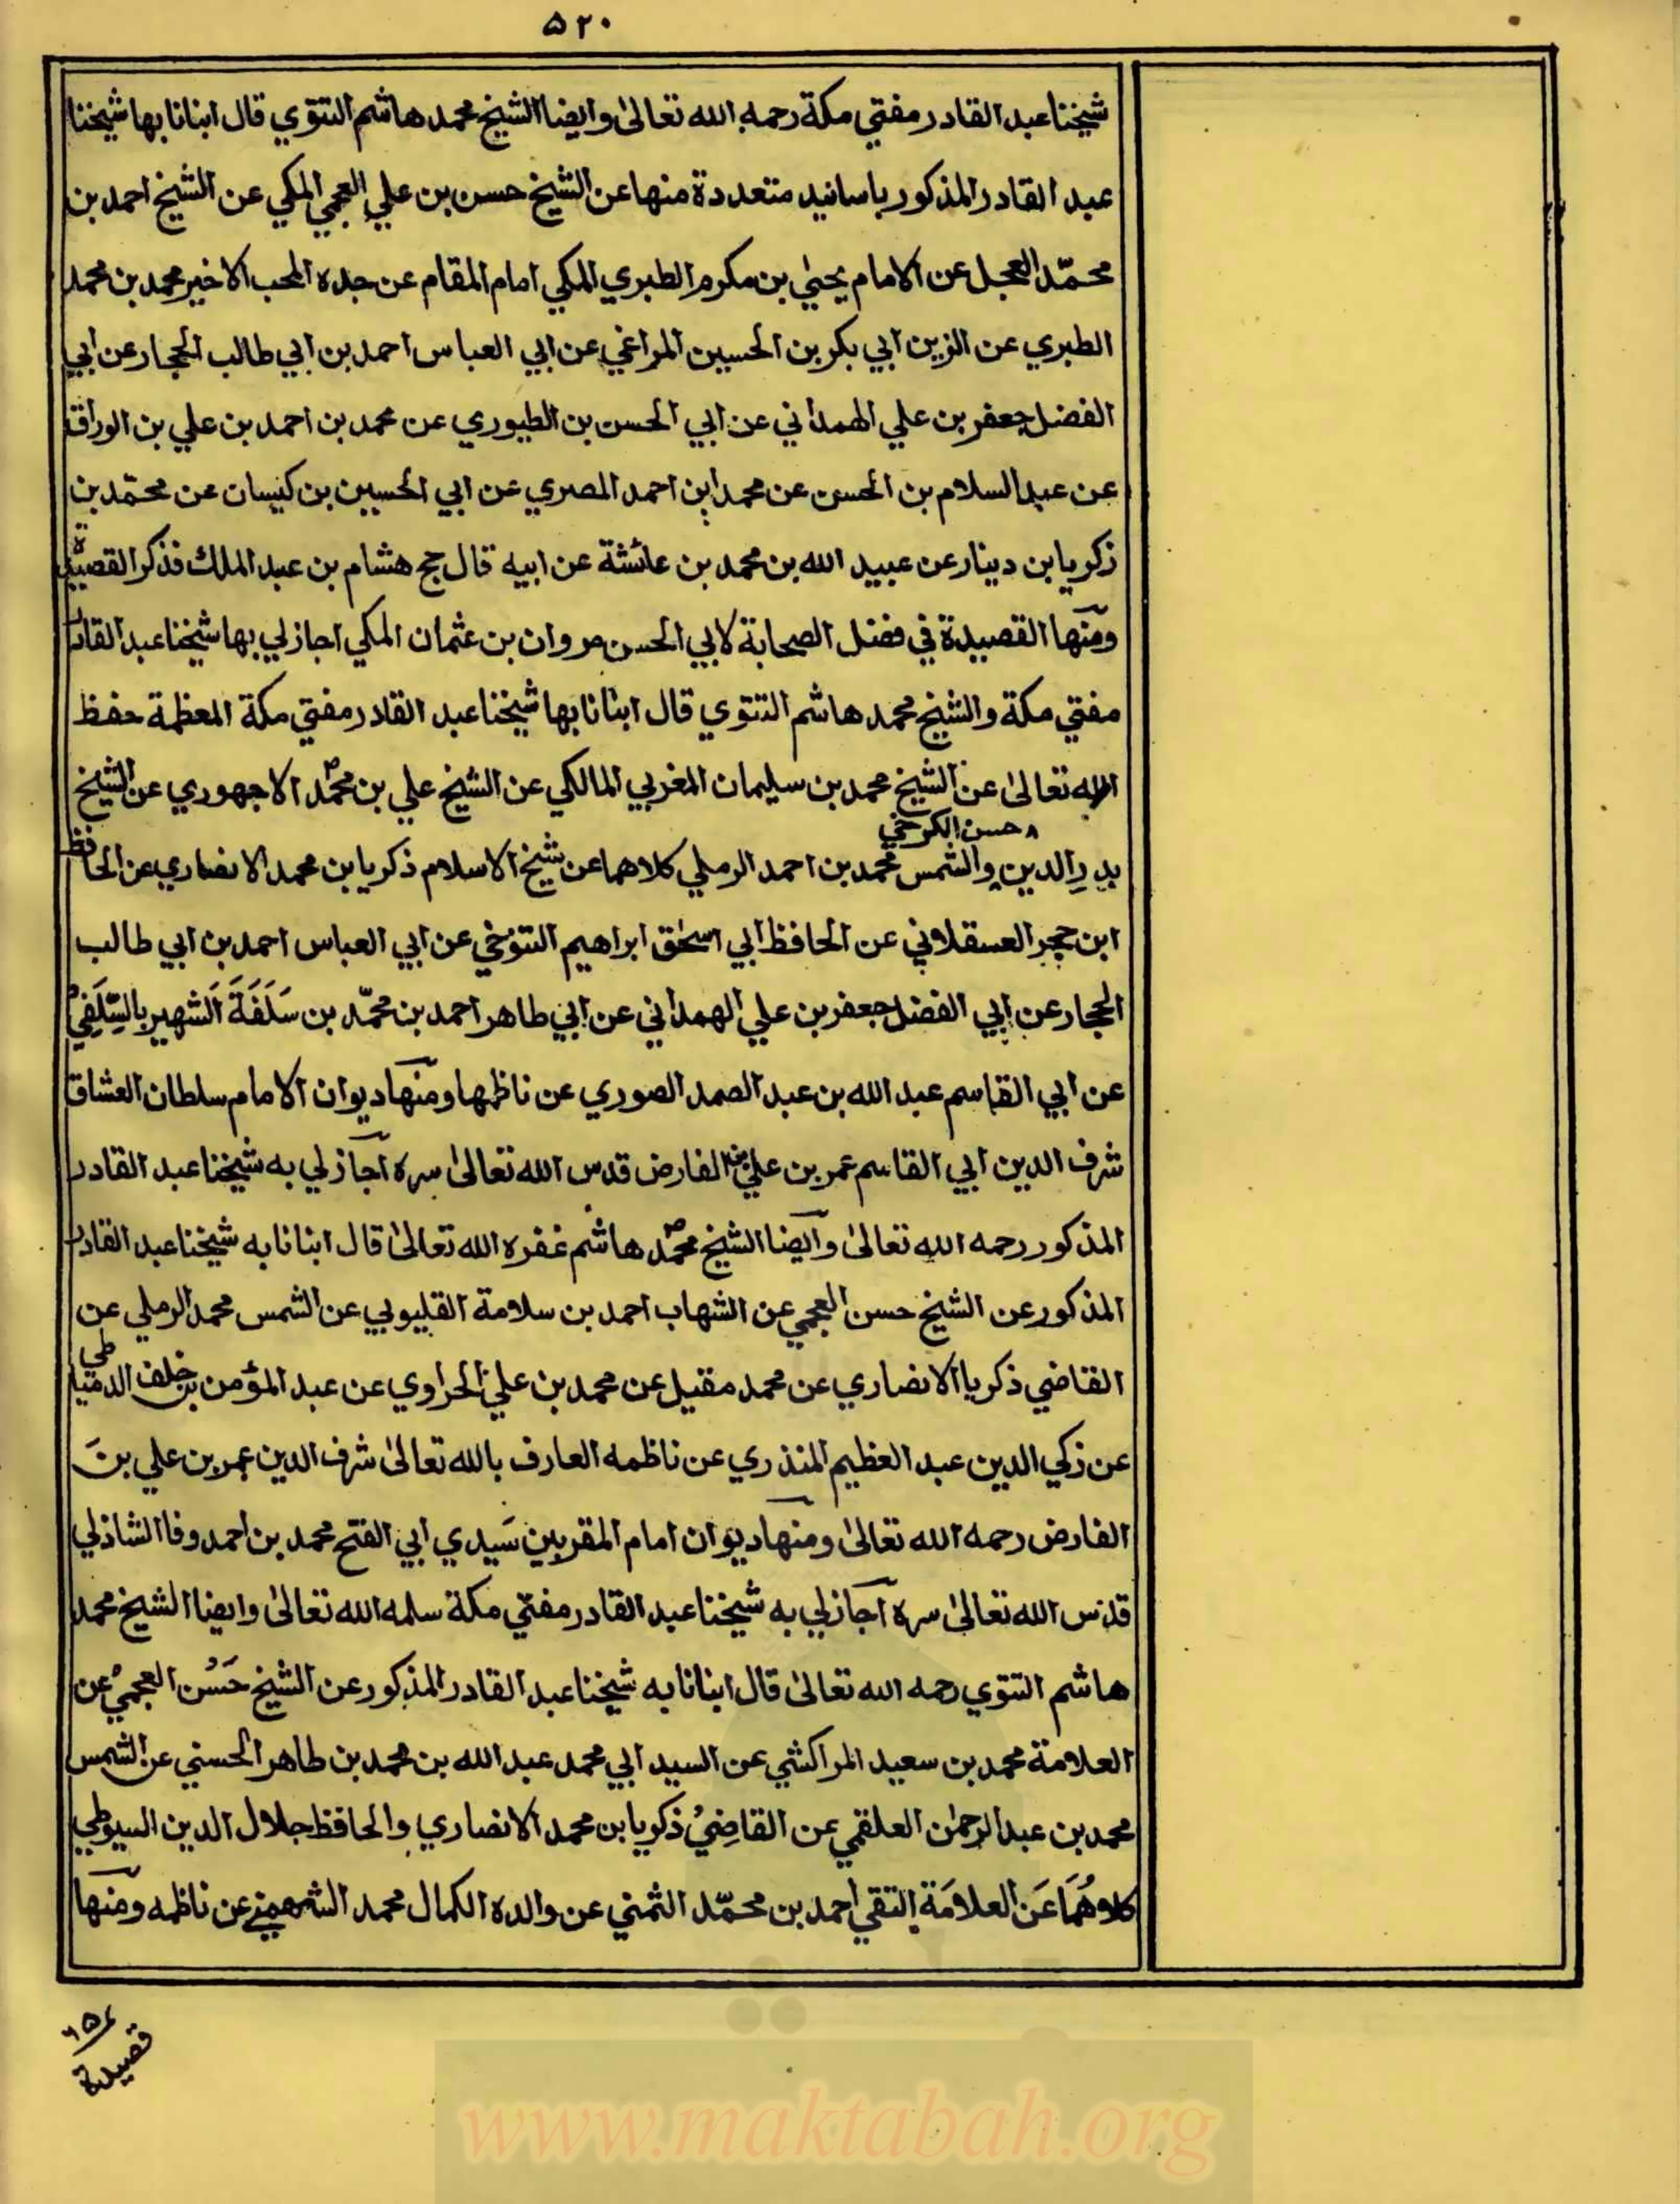 ۵۲۰
شيخنا عبد القادر مفتي مكة رحمه الله تعالىٰ وايضا الشيخ محمد هاشم التتوي قال انبانا بها شيخنا
عبد القادر المذكور باسانيد متعددة منها عن الشيخ حسن بن علي العجمي المكي عن الشيخ احمد بن
محمّد العجل عن الامام يحيٰي بن مكرم الطبري المكي امام المقام عن جده المحب الاخير محمد بن محمد
الطبري عن الزين ابي بكر بن الحسين المراغي عن ابي العباس احمد بن ابي طالب الحجار عن ابي
الفضل جعفر بن علي الهمداني عن ابي الحسن بن الطيوري عن محمد بن احمد بن علي بن الوراق
عن عبد السلام بن الحسن عن محمد ابن احمد المصري عن ابي الحسين بن كيسان عن محمّد بن
زكريا بن دينار عن عبيد الله بن محمد بن عائشة عن ابيه قال حج هشام بن عبد الملك فذكر القصيدة
ومنها القصيدة في فضل الصحابة لابي الحسن مروان بن عثمان المكي اجاز لي بها شيخنا عبد القادر
مفتي مكة والشيخ محمد هاشم التتوي قال انبانا بها شيخنا عبد القادر مفتي مكة المعظمة حفظ
الله تعالىٰ عن الشيخ محمد بن سليمان المغربي المالكي عن الشيخ علي بن محمّد الاجهوري عن الشيخ
حسن الكرخي
بدر الدين والشمس محمد بن احمد الرملي كلاهما عن شيخ الاسلام ذكريا بن محمد الانصاري عن الحافظ
ابن حجر العسقلاني عن الحافظ ابي اسحٰق ابراهيم التنوخي عن ابي العباس احمد بن ابي طالب
الحجار عن ابي الفضل جعفر بن علي الهمداني عن ابي طاهر احمد بن محمّد بن سَلَفَةَ اَلشهير بالسِّلَفِيْ
عن ابي القاسم عبد الله بن عبد الصمد الصوري عن ناظمها ومنها ديوان الامام سلطان العشاق
شرف الدين ابي القاسم عمر بن علي بن الفارض قدس الله تعالىٰ سره اجاز لي به شيخنا عبد القادر
المذكور رحمه الله تعالىٰ وايضا الشيخ محمّد هاشم غفره الله تعالىٰ قال انبانا به شيخنا عبد القادر
المذكور عن الشيخ حسن العجمي عن الشهاب احمد بن سلامة القليوبي عن الشمس محمد الرملي عن
القاضي ذكريا الانصاري عن محمد مقبل عن محمد بن علي الحراوي عن عبد المؤمن بن خلف الدمياطي
عن زكي الدين عبد العظيم المنذري عن ناظمه العارف بالله تعالىٰ شرف الدين عمر بن علي بن
الفارض رحمه الله تعالىٰ ومنها ديوان امام المقربين سَيدي ابي الفتح محمد بن احمد وفا الشاذلي
قدس الله تعالىٰ سره اجاز لي به شيخنا عبد القادر مفتي مكة سلمه الله تعالىٰ وايضا الشيخ محمد
هاشم التتوي رحمه الله تعالىٰ قال انبانا به شيخنا عبد القادر المذكور عن الشيخ حَسَن العجمي عن
العلامة محمد بن سعيد المراكشي عن السيد ابي محمد عبد الله بن محمد بن طاهر الحسني عن الشمس
محمد بن عبد الرحمٰن العلقمي عن القاضِيْ ذكريا بن محمد الانصاري والحافظ جلال الدين السيوطي
كلاهُمَا عَن العلامَة التقي احمد بن محمّد الشمني عن والده الكمال محمد عن ناظمه ومنها
قصيدة
www.maktabah.org